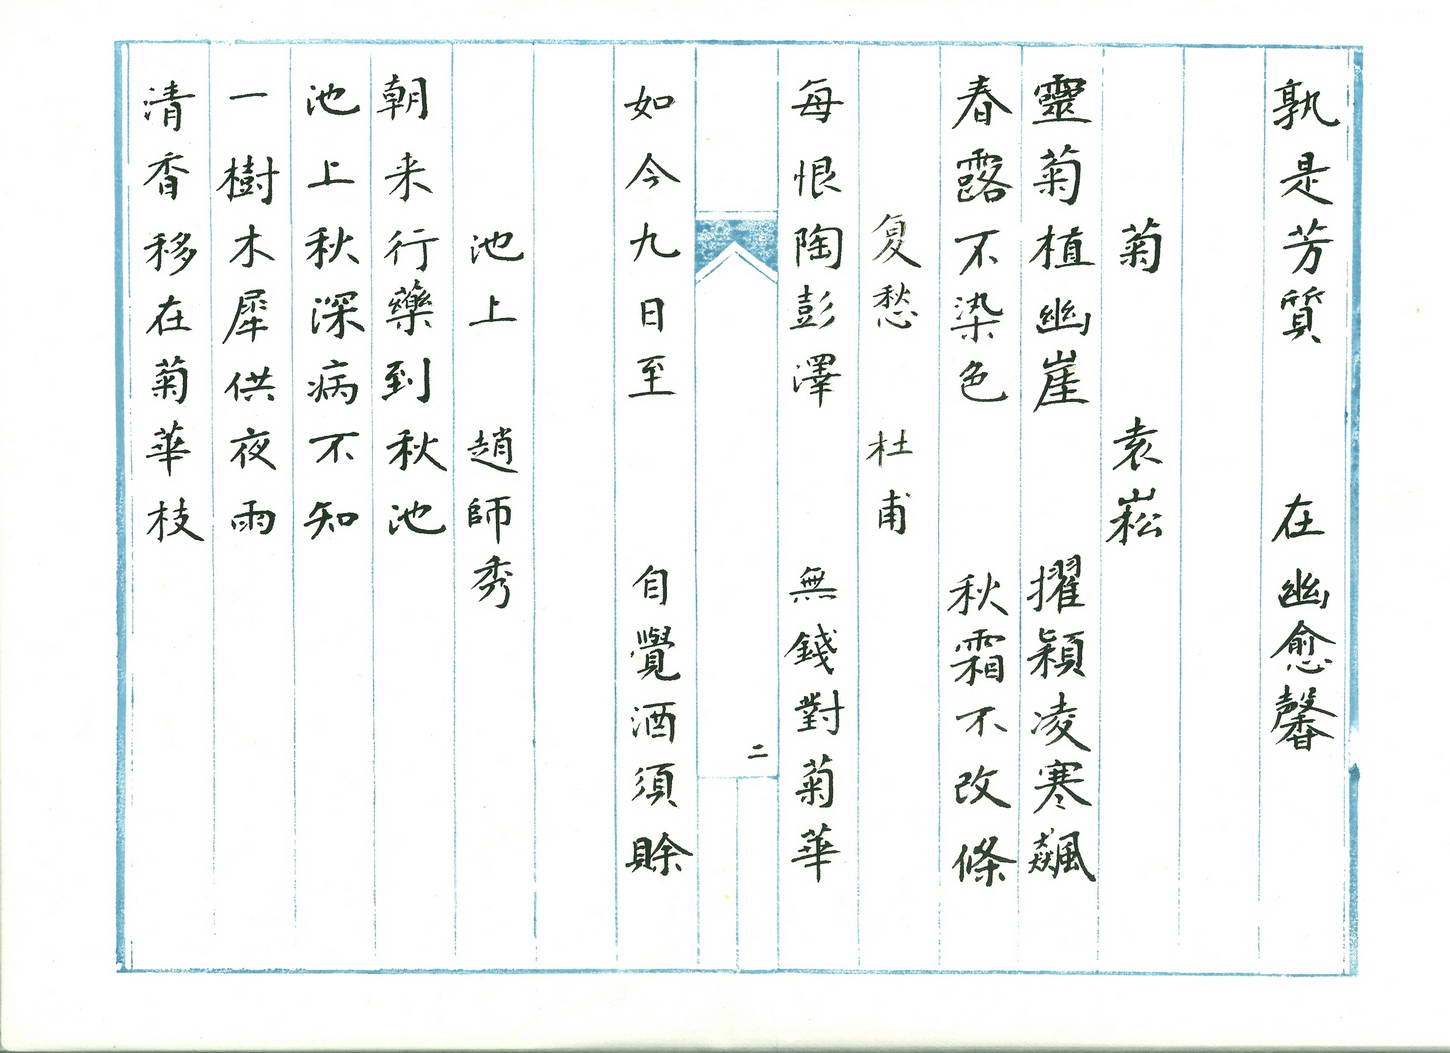 孰是芳質　在幽愈馨
菊　袁崧
靈菊植幽崖　擢穎凌寒飆
春露不染色　秋霜不改條
复愁　杜甫
每恨陶彭澤　無錢對菊華
二
如今九日至　自覺酒須賒
池上　趙師秀
朝来行藥到秋池
池上秋深病不知
一樹木犀供夜雨
清香移在菊華枝